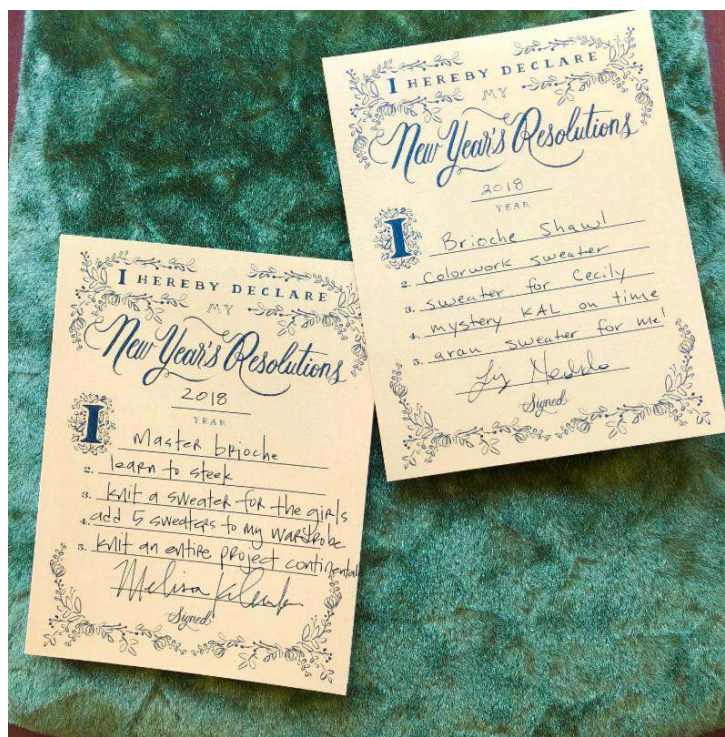 I HEREBY DECLARE
MY
New Year's Resolutions
2018
YEAR
I Master brioche
2. learn to steek
3. knit a sweater for the girls
4. add 5 sweaters to my wardrobe
5. knit an entire project continental
Melissa
Signed
I HEREBY DECLARE
MY
New Year's Resolutions
2018
YEAR
I Brioche Shawl
2. colorwork sweater
3. sweater for Cecily
4. mystery KAL on time
5. aran sweater for me!
Liz
Signed